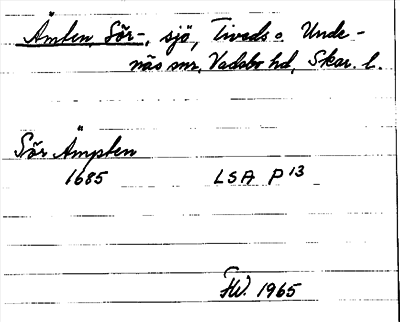 Ämten, Sör-, sjö, Tiveds o. Unde-
näs snr, Vadsbo hd, Skar. l.
Sör Ämpten
1685 LSA P 13
HW. 1965